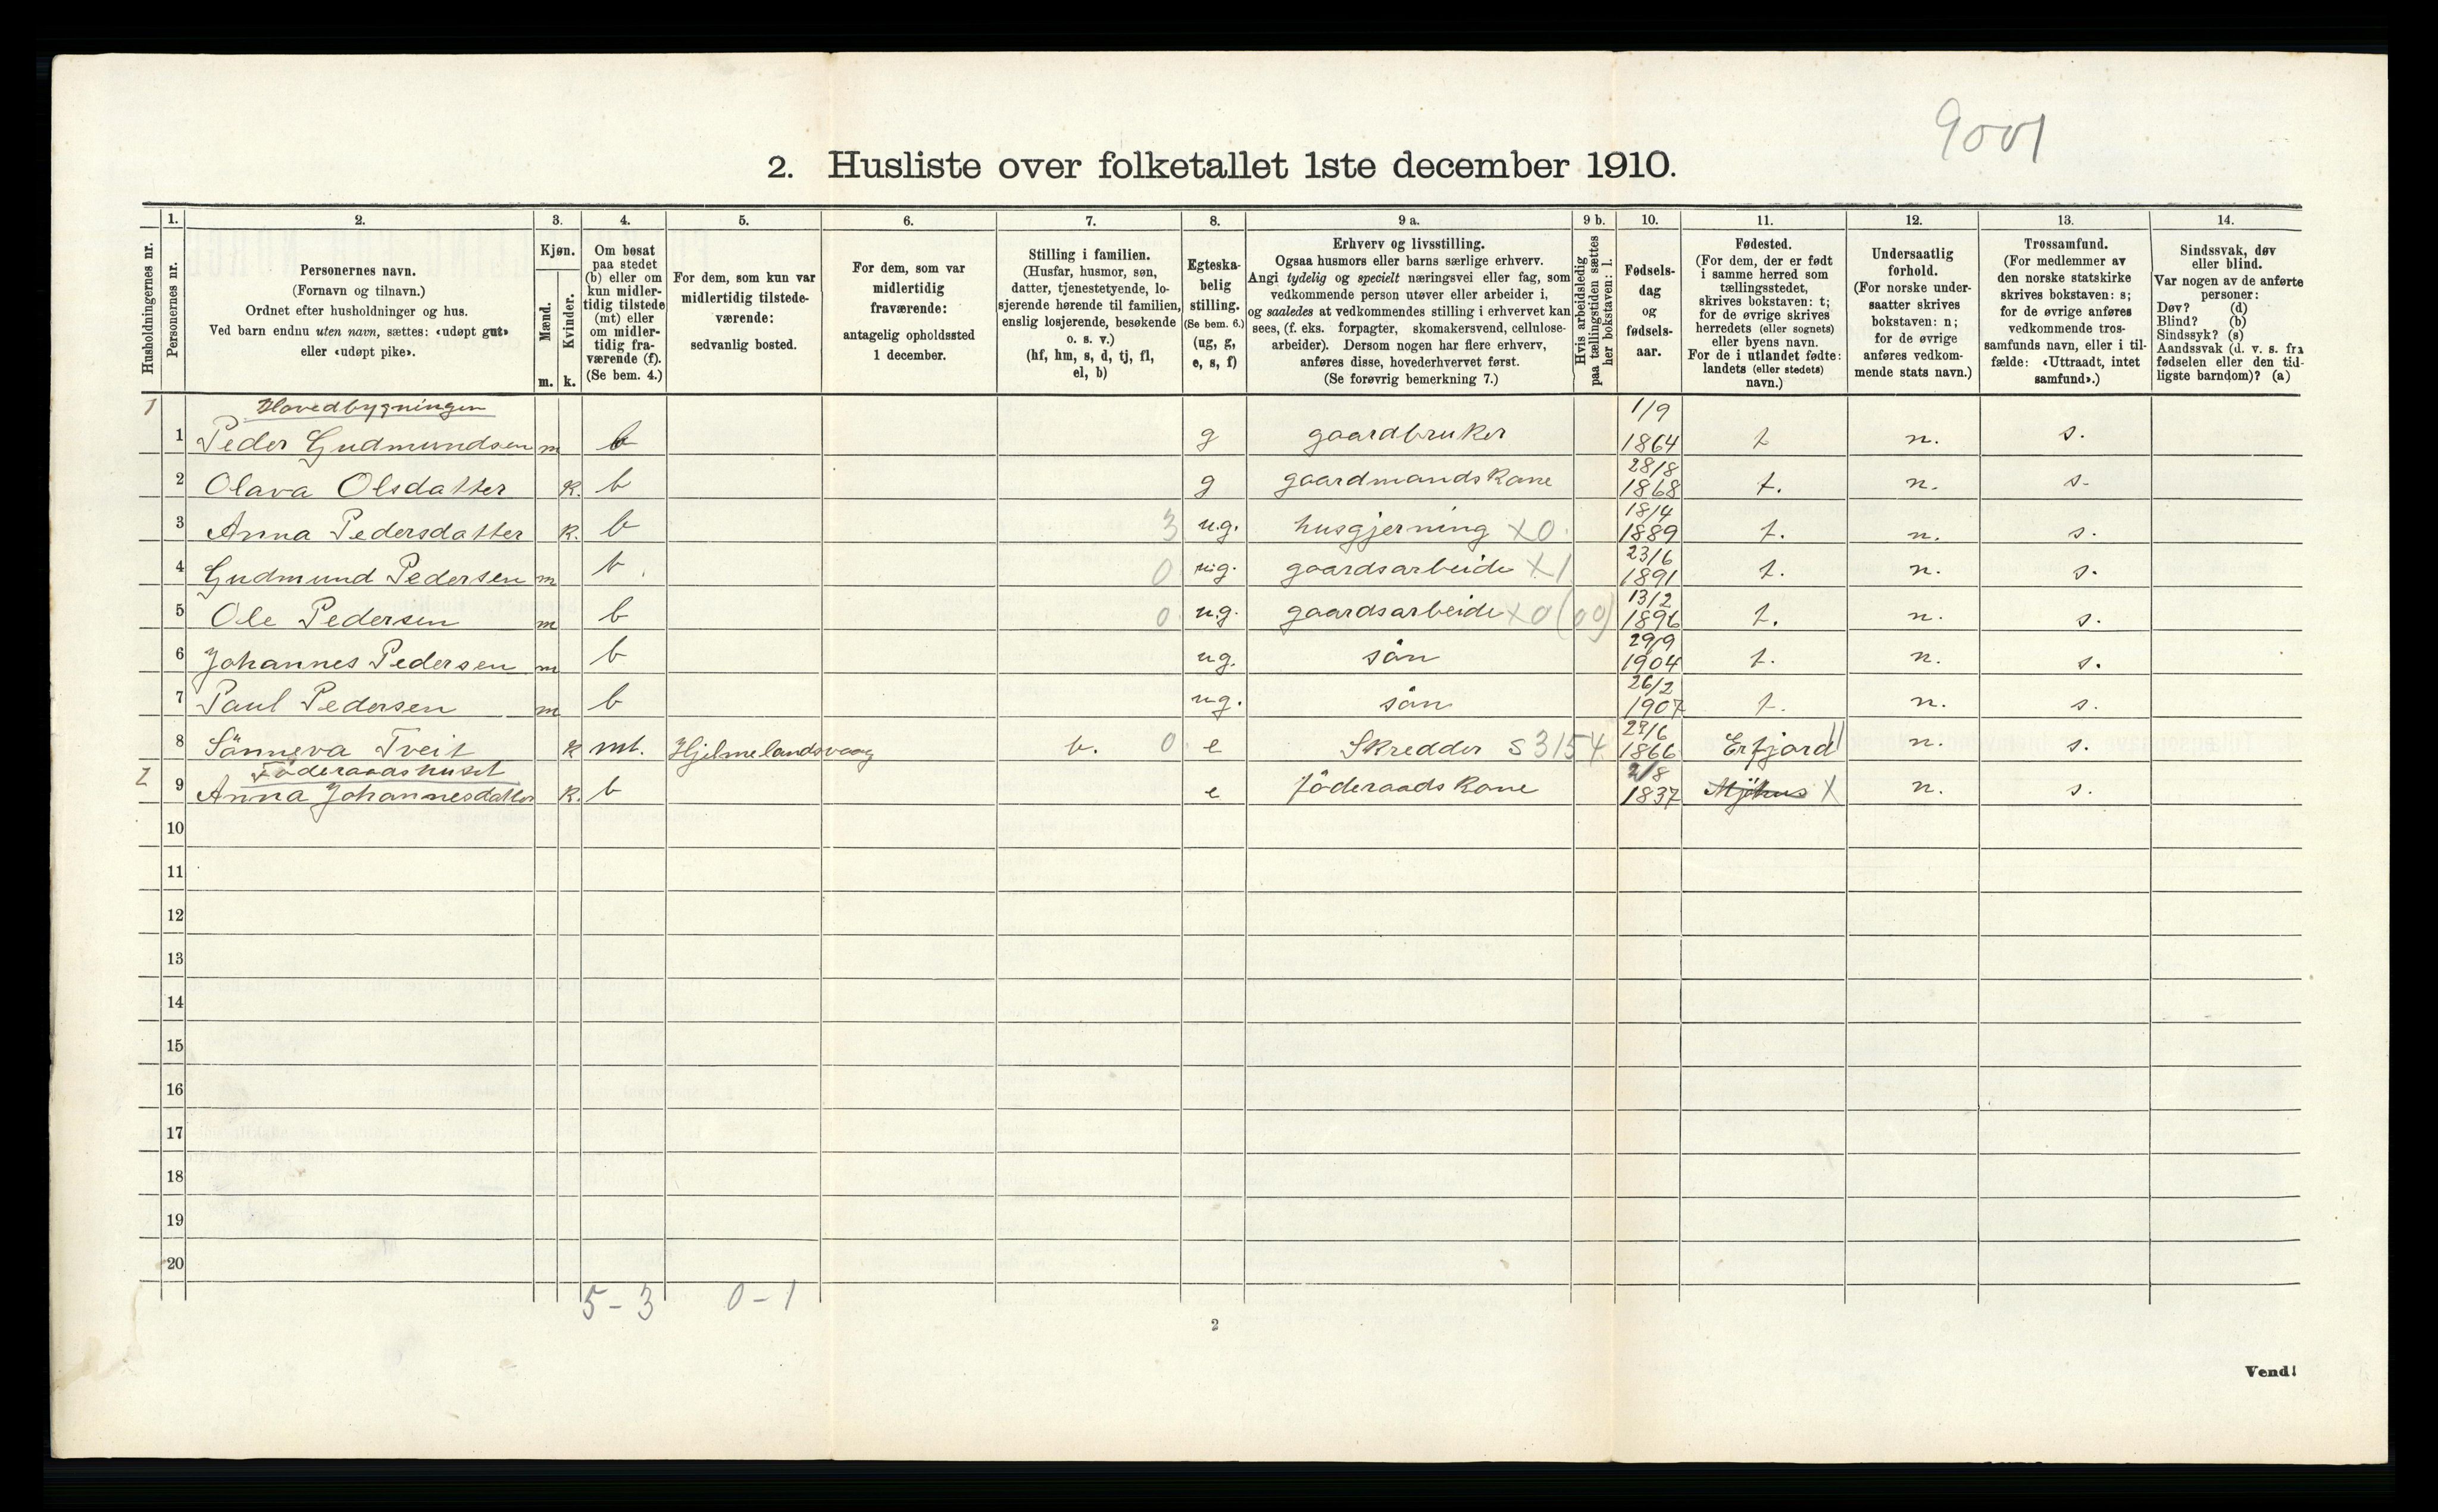 9001
2. Husliste over folketallet 1ste december 1910.
Husholdningernes nr.
1.
Personernes nr.
2.
Personernes navn.
(Fornavn og tilnavn.)
Ordnet efter husholdninger og hus.
Ved barn endnu uten navn, sættes: «udøpt gut»
eller «udøpt pike».
3.
Kjøn.
Mænd.
Kvinder.
m. k.
4.
Om bosat
paa stedet
(b) eller om
kun midler-
tidig tilstede
(mt) eller
om midler-
tidig fra-
værende (f).
(Se bem. 4.)
5.
For dem, som kun var
midlertidig tilstede-
værende:
sedvanlig bosted.
6.
For dem, som var
midlertidig
fraværende:
antagelig opholdssted
1 december.
7.
Stilling i familien.
(Husfar, husmor, søn,
datter, tjenestetyende, lo-
sjerende hørende til familien,
enslig losjerende, besøkende
o. s. v.)
(hf, hm, s, d, tj, fl,
el, b)
8.
Egteska-
belig
stilling.
(Se bem. 6.)
(ug, g,
e, s, f)
9 a.
Erhverv og livsstilling.
Ogsaa husmors eller barns særlige erhverv.
Angi tydelig og specielt næringsvei eller fag, som
vedkommende person utøver eller arbeider i,
og saaledes at vedkommendes stilling i erhvervet kan
sees, (f. eks. forpagter, skomakersvend, cellulose-
arbeider). Dersom nogen har flere erhverv,
anføres disse, hovederhvervet først.
(Se forøvrig bemerkning 7.)
9 b.
Hvis arbeidsledig
paa tællingstiden sættes
her bokstaven: l.
10.
Fødsels-
dag
og
fødsels-
aar.
11.
Fødested.
(For dem, der er født
i samme herred som
tællingsstedet,
skrives bokstaven: t;
for de øvrige skrives
herredets (eller sognets)
eller byens navn.
For de i utlandet fødte:
landets (eller stedets)
navn.)
12.
Undersaatlig
forhold.
(For norske under-
saatter skrives
bokstaven: n;
for de øvrige
anføres vedkom-
mende stats navn.)
13.
Trossamfund.
(For medlemmer av
den norske statskirke
skrives bokstaven: s;
for de øvrige anføres
vedkommende tros-
samfunds navn, eller i til-
fælde: «Uttraadt, intet
samfund».)
14.
Sindssvak, døv
eller blind.
Var nogen av de anførte
personer:
Døv? (d)
Blind? (b)
Sindssyk? (s)
Aandssvak (d. v. s. fra
fødselen eller den tid-
ligste barndom)? (a)
1 Hovedbygningen
1 Peder Gudmundsen m b g gaardbruker 1/9 1864 t n. s.
2 Olava Olsdatter k. b g gaardmandskone 28/8 1868 t. n. s.
3 Anna Pedersdatter k. b 3 u.g. husgjerning x0 18/4 1889 t. n. s.
4 Gudmund Pedersen m b 0 ug. gaardsarbeide x1 23/6 1891 t. n. s.
5 Ole Pedersen m b 0 ug. gaardsarbeide x0 (00) 13/2 1896 t. n. s.
6 Johannes Pedersen m b ug. sön 29/9 1904 t. n. s.
7 Paul Pedersen m b ug. sön 26/2 1907 t. n. s.
8 Sönneva Tveit k mt. Hjelmelandsvaag b. 0 e Skredder S 3154 1866 Erfjord n. s.
2 Föderaadshuset
9 Anna Johannesdatter k. b e föderaadskone 2/8 1837 x n. s.
10
11
12
13
14
15
16
17
18
19
20
5-3 0-1
2
Vend!